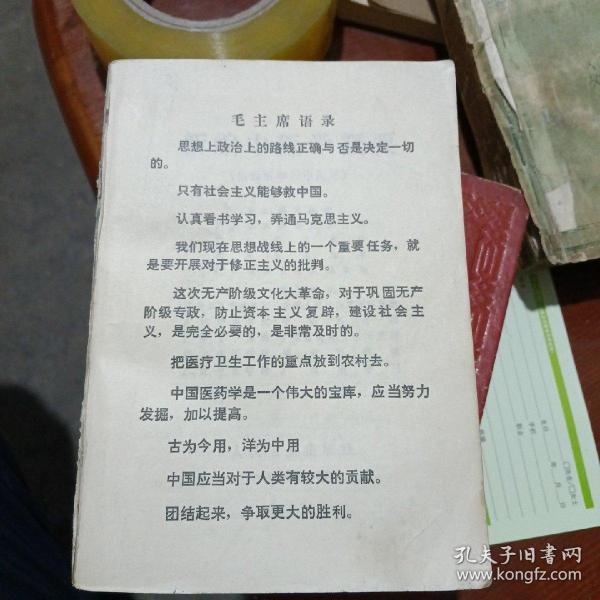 毛主席语录
思想上政治上的路线正确与否是决定一切
的。
只有社会主义能够救中国。
认真看书学习，弄通马克思主义。
我们现在思想战线上的一个重要任务，就
是要开展对于修正主义的批判。
这次无产阶级文化大革命，对于巩固无产
阶级专政，防止资本主义复辟，建设社会主
义，是完全必要的，是非常及时的。
把医疗卫生工作的重点放到农村去。
中国医药学是一个伟大的宝库，应当努力
发掘，加以提高。
古为今用，洋为中用
中国应当对于人类有较大的贡献。
团结起来，争取更大的胜利。
孔夫子旧书网
www.kongfz.com